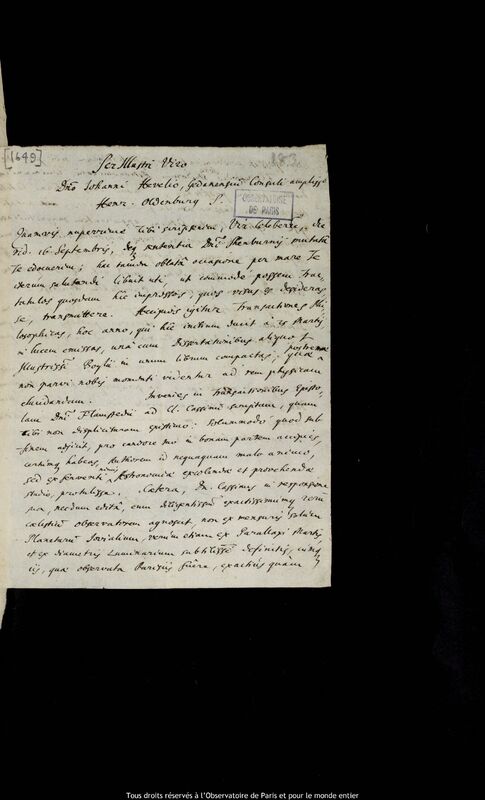 [1649]
183
Per Illustri Viro
Dno Johanni Hevelio, Gedanensium Consuli amplissº
Henr. Oldenburg S.
OBSERVATOIRE
DE PARIS
Quamvis nuperrime Tibi scripserim, Vir Celeberre, die
vid. 16 Septembris, deq sententia Dni Shenburnij mutata
Te edocuerim; hac tamen oblata occasione per mare Te
iterum salutandi libuit uti, ut commode possem Trac-
tatulos quosdam hic impressos, quos visus es desideras
se, transmittere. Accipies igitur Transactiones Phi
losophicas, hoc anno, qui hic initium ducit a 25 Martij
in lucem emissas, una cum Dissertationibus aliquot
Illustrissi Boylii in unum librum compactas, quæ
postremæ
non parvi nobis momenti videntur ad rem physicam
elucidandam. Invenies in Transactionibus Episto-
lam Dni Flamstedii ad Cl. Cassinum scriptam, quam
tibi non displicituram existimo: Solummodo quod sub
finem adjicit, pro candore tuo in bonam partem accipies,
certumq habeas, Authorem id nequaquam malo animo,
sed ex ferventi Astronomiæ excolendæ et provehendæ
studio, protulisse. Cætera, Dn. Cassinus in responsione
sua, necdum edita, eum diligentissimum exactissimumq rerum
cœlestium observatorem agnoscit, non ex mensuris
Planetarum Jovialium, verum etiam ex Parallaxi Martis,
et ex diametris Luminarium subtilissime definitis, cum
iis, quæ observata Parisiis fuere, exactius quam
Tous droits réservés à l'Observatoire de Paris et pour le monde entier